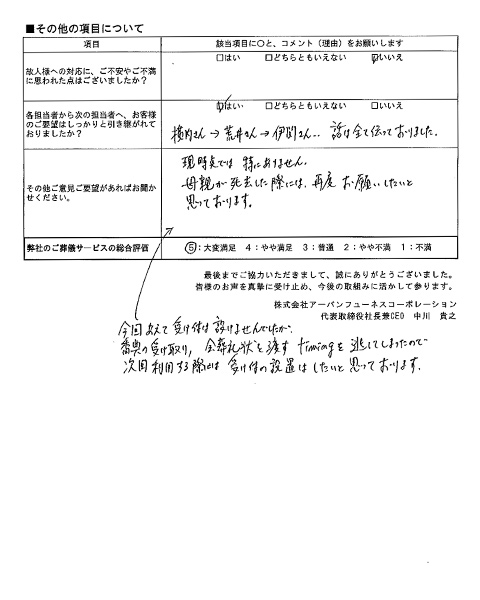 ■その他の項目について
項目 該当項目に○と、コメント（理由）をお願いします
故人様への対応に、ご不安やご不満に思われた点はございましたか？
□はい □どちらともいえない ☑いいえ
各担当者から次の担当者へ、お客様のご要望はしっかりと引き継がれておりましたか？
☑はい □どちらともいえない □いいえ
横内さん→荒井さん→伊関さん.. 話は全て伝っておりました。
その他ご意見ご要望があればお聞かせください。
現時点では特にありません。
母親が死去した際には、再度お願いしたいと
思っております。
弊社のご葬儀サービスの総合評価 ⑤：大変満足 4：やや満足 3：普通 2：やや不満 1：不満
最後までご協力いただきまして、誠にありがとうございました。
皆様のお声を真摯に受け止め、今後の取組みに活かして参ります。
株式会社アーバンフューネスコーポレーション
代表取締役社長兼CEO 中川 貴之
今回あえて受け付は設けませんでしたが、
香典の受け取り, 会葬礼状を渡すtimingを逃してしまったので
次回利用する際には受け付の設置はしたいと思っております。